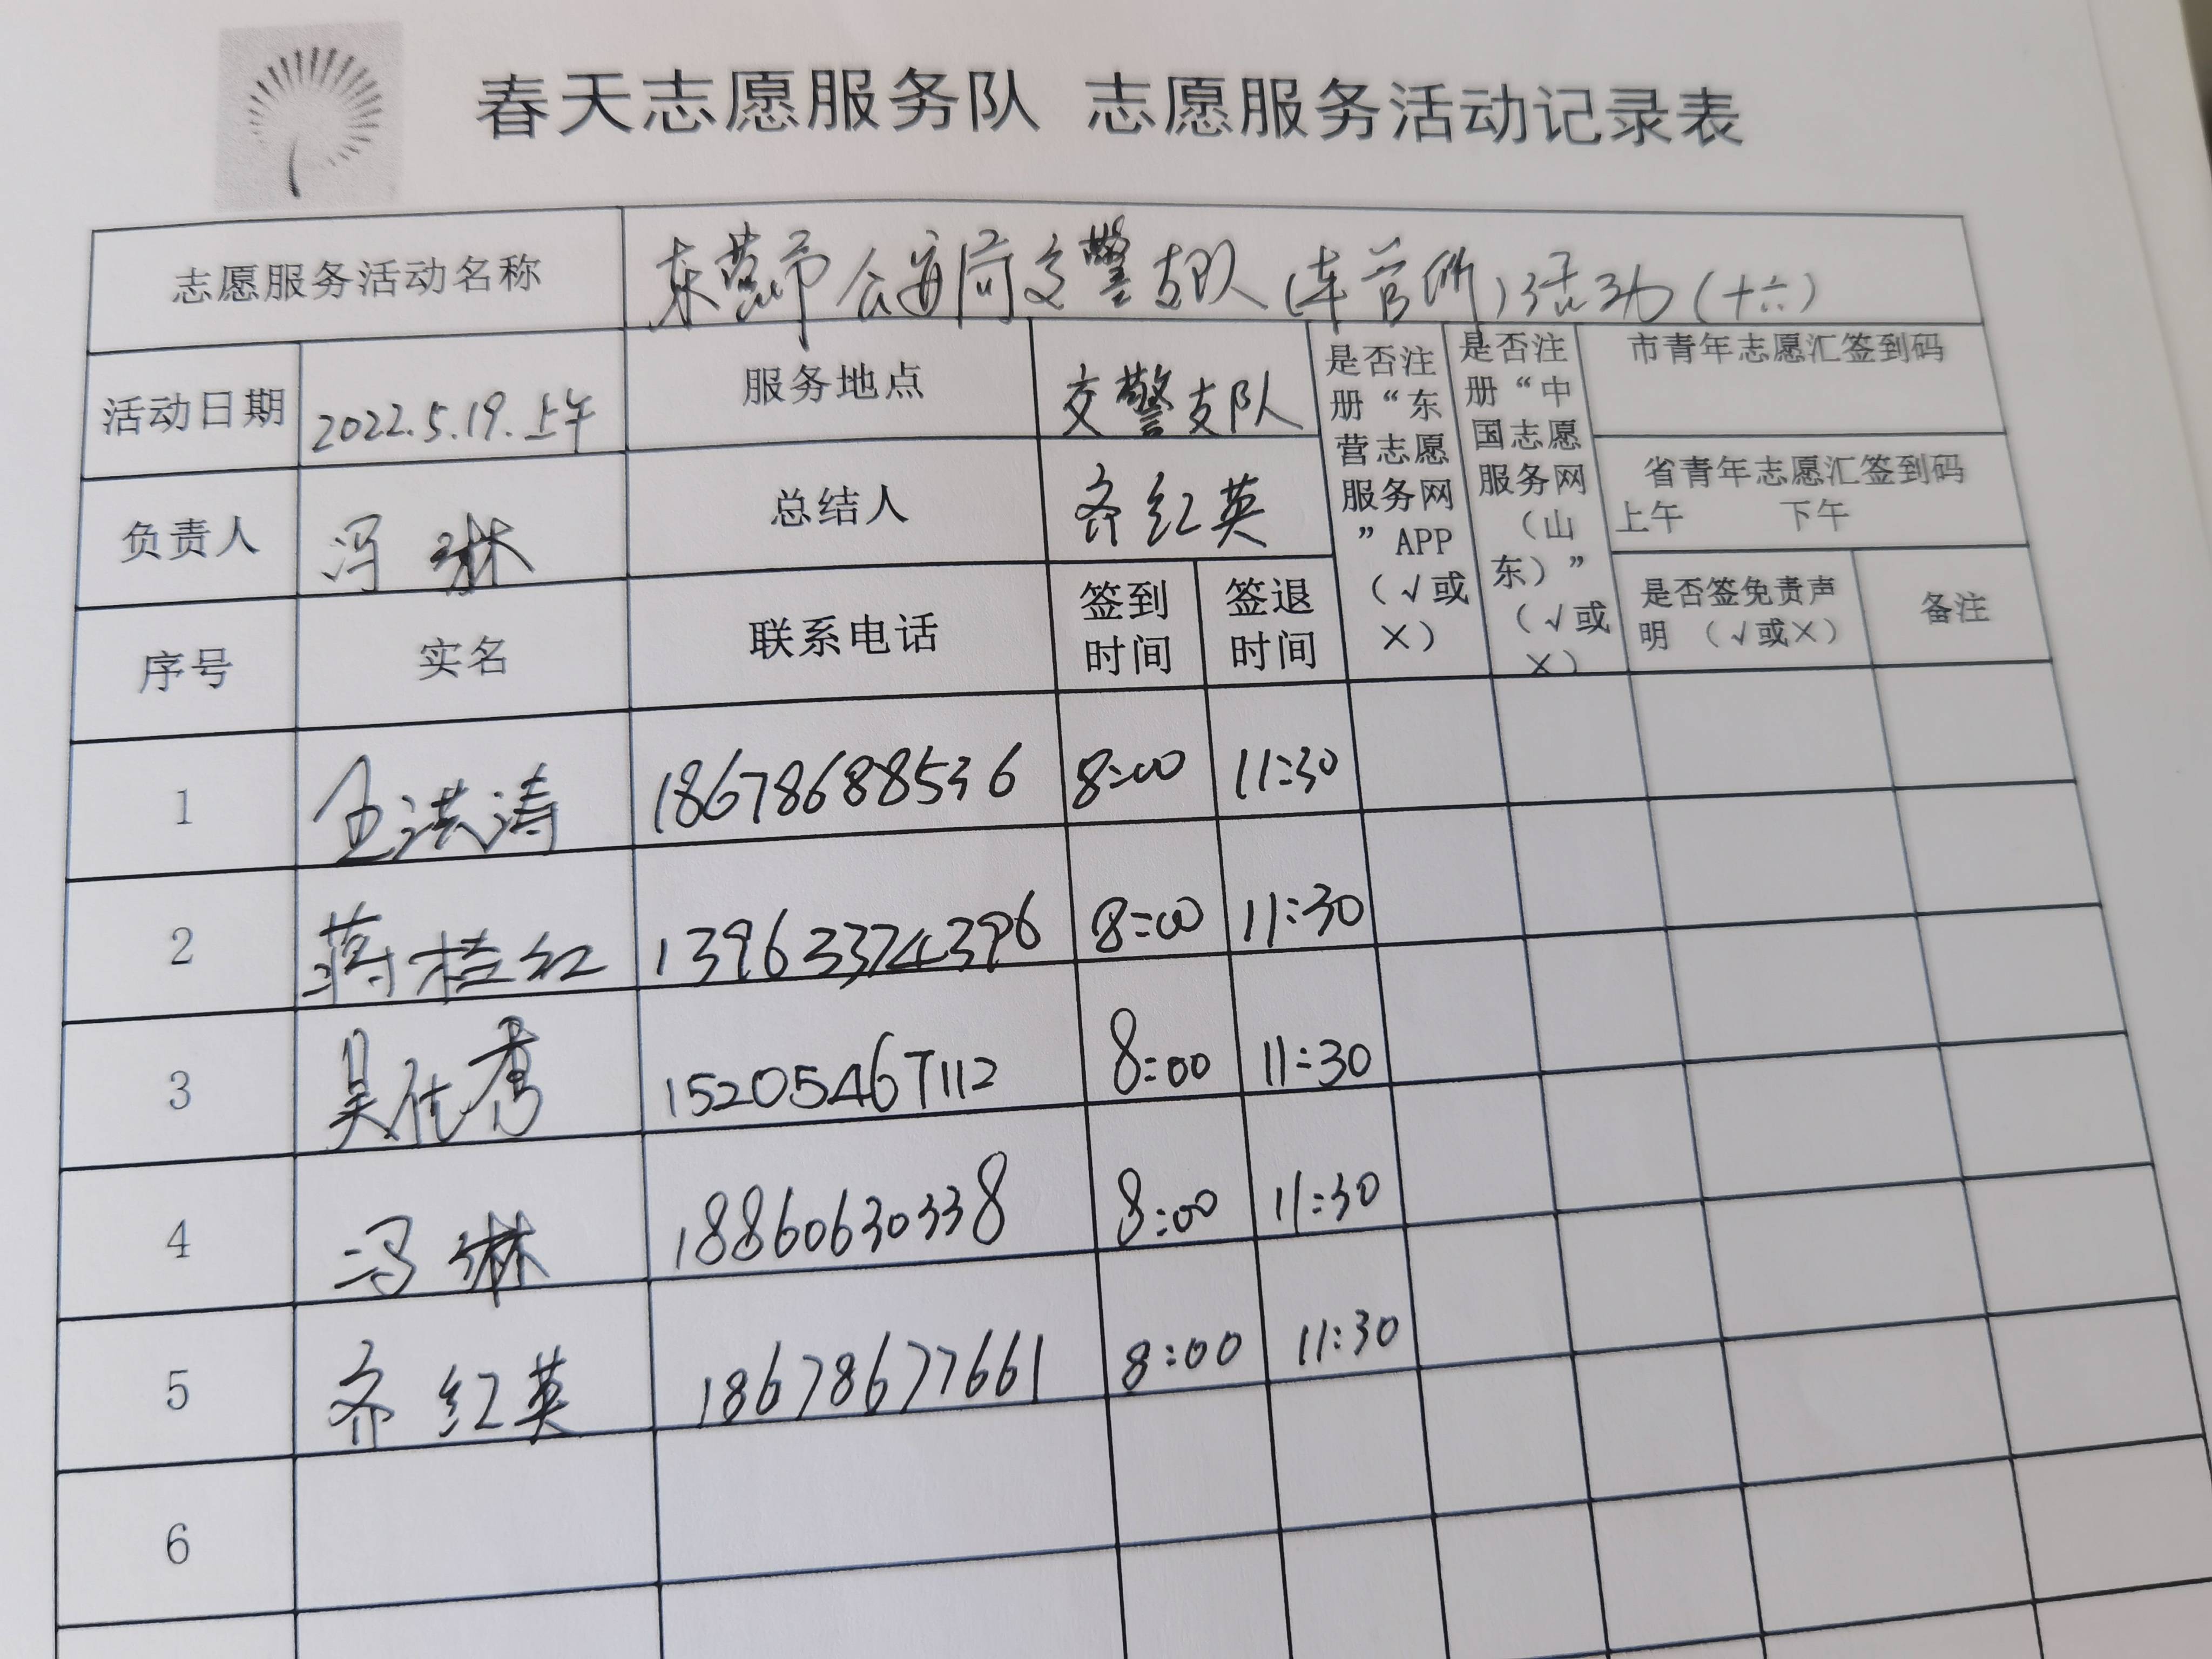 春天志愿服务队 志愿服务活动记录表
志愿服务活动名称 东营市公安局交警支队(车管所)活动(十六)
活动日期 2022.5.19.上午 服务地点 交警支队
是否注册“东营志愿服务网”APP（√或×）
是否注册“中国志愿服务网（山东）”（√或×）
市青年志愿汇签到码
负责人 冯琳 总结人 齐红英
省青年志愿汇签到码
上午 下午
序号 实名 联系电话 签到时间 签退时间 是否签免责声明（√或×） 备注
1 洪涛 18678688536 8:00 11:30
2 蒋桂红 13963374396 8:00 11:30
3 吴秀 15205467112 8:00 11:30
4 冯琳 18860630338 8:00 11:30
5 齐红英 18678677661 8:00 11:30
6